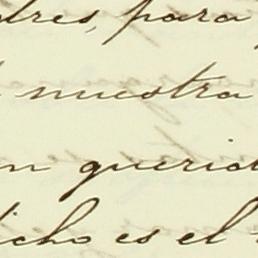 dres, para
nuestra
n querid
icho es el